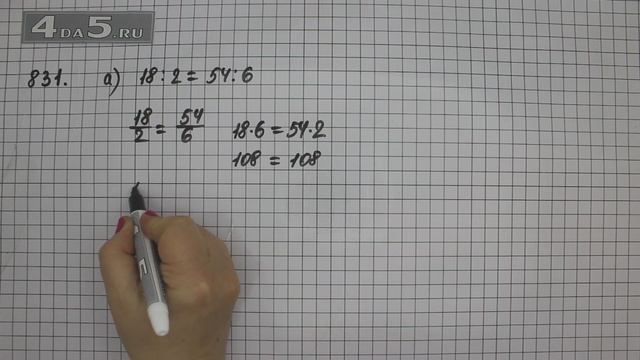 4ДА5.RU
831. а) 18 : 2 = 54 : 6
18/2 = 54/6 18·6 = 54·2
108 = 108